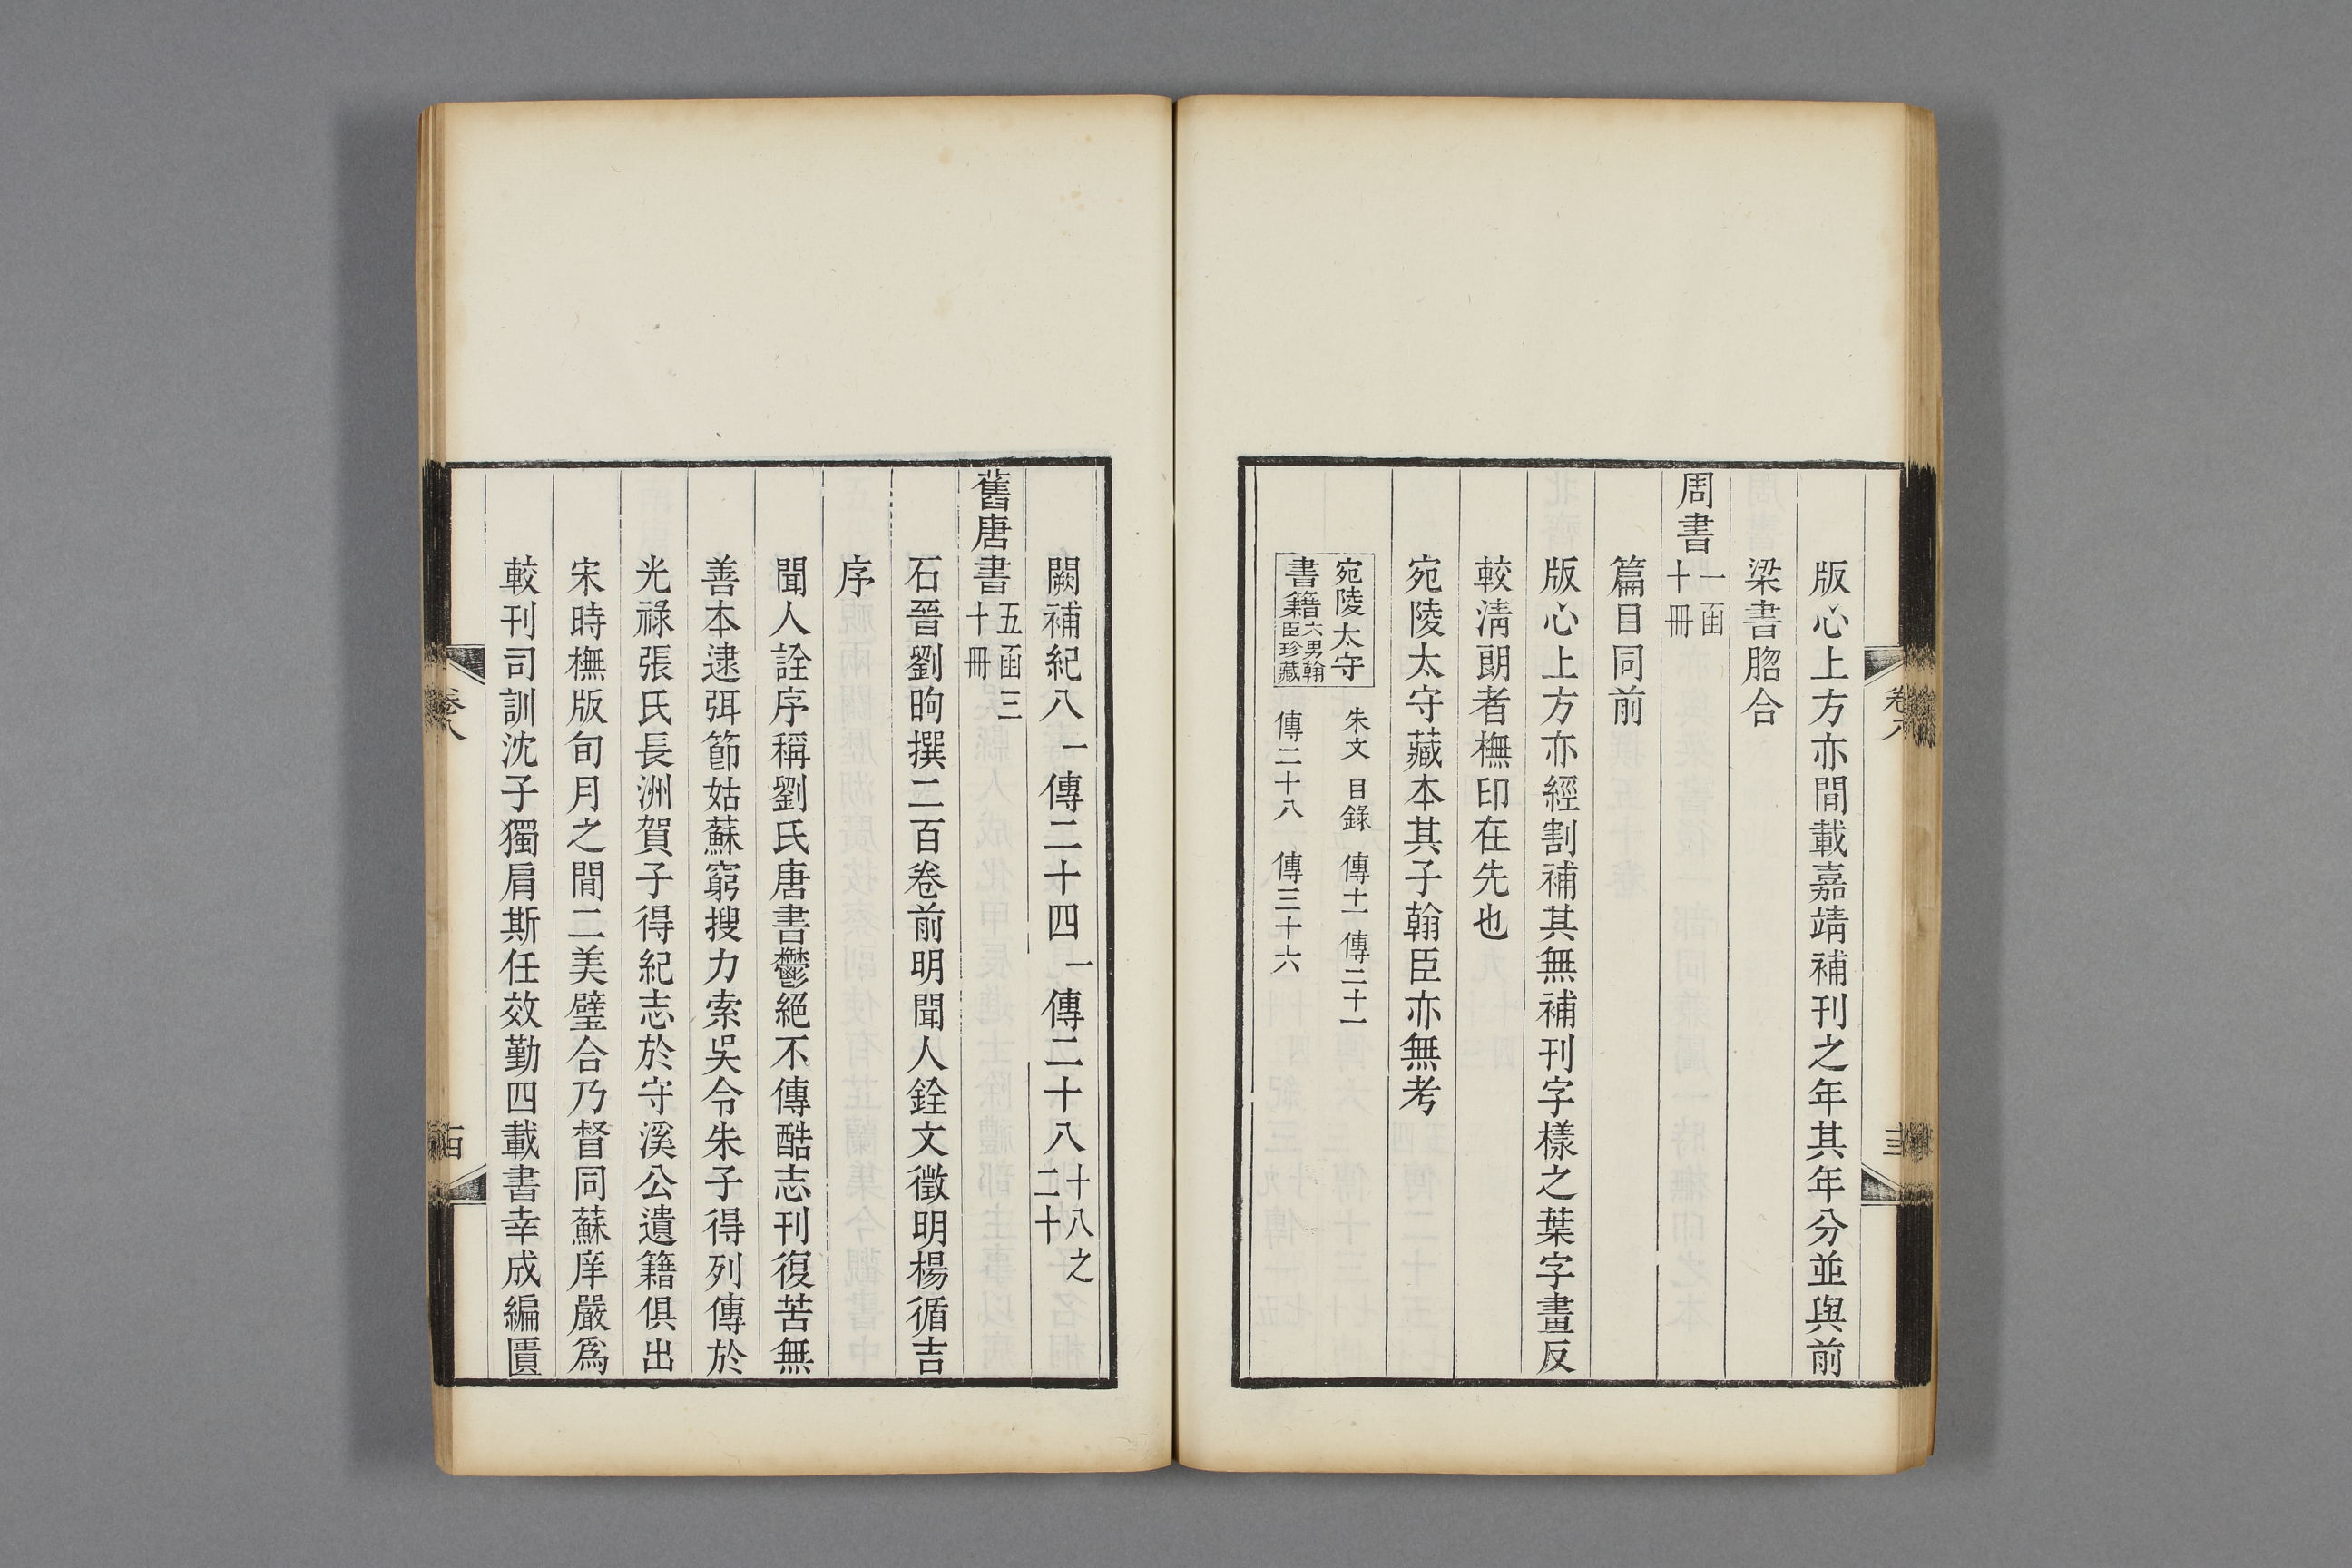 版心上方亦間載嘉靖補刊之年其年分並與前
梁書脗合
周書一函十冊
篇目同前
版心上方亦經割補其無補刊字樣之葉字畫反
較淸朗者橅印在先也
宛陵太守藏本其子翰臣亦無考
宛陵太守 朱文 目錄 傳十一 傳二十一
書籍六男翰臣珍藏 傳二十八 傳三十六
卷八
十三
闕補紀八一傳二十四一傳二十八十八之二十
舊唐書五函三十冊
石晉劉昫撰二百卷前明聞人銓文徵明楊循吉
序
聞人詮序稱劉氏唐書鬱絕不傳酷志刊復苦無
善本逮弭節姑蘇窮搜力索吳令朱子得列傳於
光祿張氏長洲賀子得紀志於守溪公遺籍俱出
宋時橅版旬月之間二美璧合乃督同蘇庠嚴爲
較刊司訓沈子獨肩斯任效勤四載書幸成編匱
卷八
十四